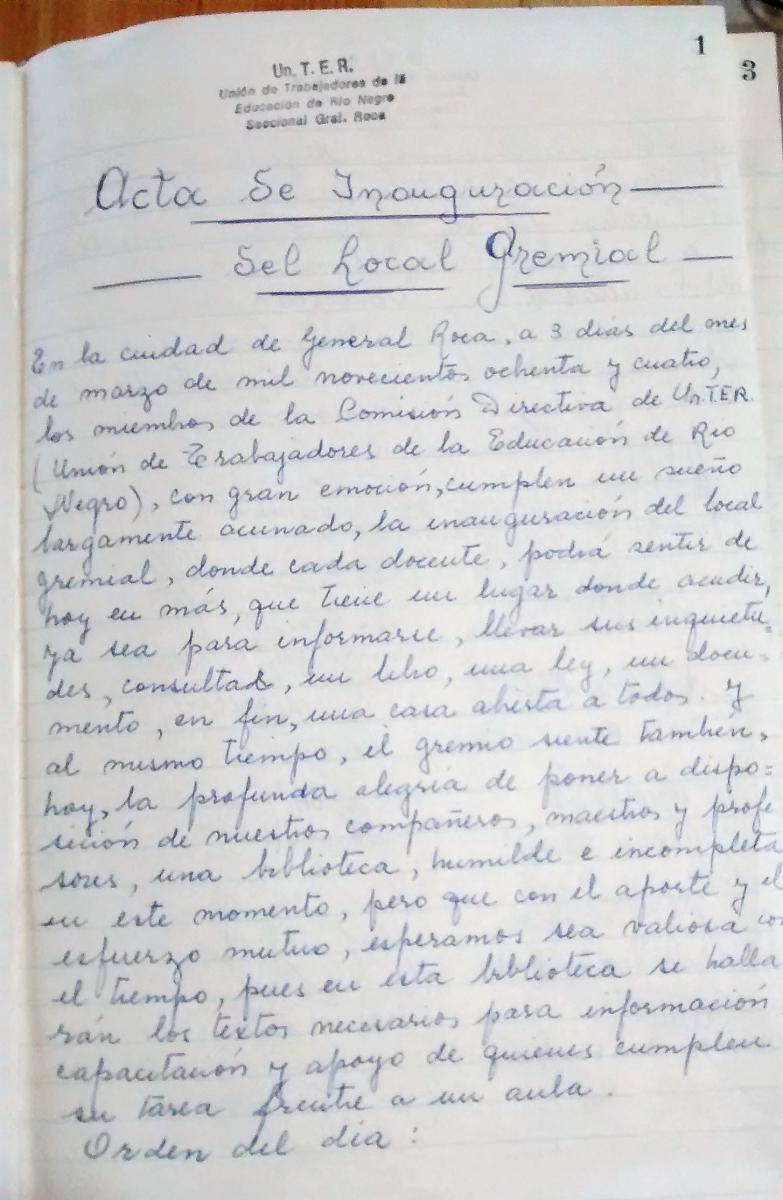 1
3
Un. T. E. R.
Unión de Trabajadores de la
Educación de Río Negro
Seccional Gral. Roca
Acta de Inauguración
del Local Gremial
En la ciudad de General Roca, a 3 días del mes
de marzo de mil novecientos ochenta y cuatro,
los miembros de la Comisión Directiva de Un.T.E.R.
(Unión de Trabajadores de la Educación de Río
Negro), con gran emoción, cumplen un sueño
largamente acunado, la inauguración del local
gremial, donde cada docente, podrá sentir de
hoy en más, que tiene un lugar donde acudir,
ya sea para informarse, llevar sus inquietu-
des, consultas, un libro, una ley, un docu-
mento, en fin, una casa abierta a todos. Y
al mismo tiempo, el gremio siente también,
hoy, la profunda alegría de poner a dispo=
sición de nuestros compañeros, maestros y profe
sores, una biblioteca, humilde e incompleta
en este momento, pero que con el aporte y el
esfuerzo mutuo, esperamos sea valiosa con
el tiempo, pues en esta biblioteca se halla
rán los textos necesarios para información
capacitación y apoyo de quienes cumplen
su tarea frente a un aula.
Orden del día: